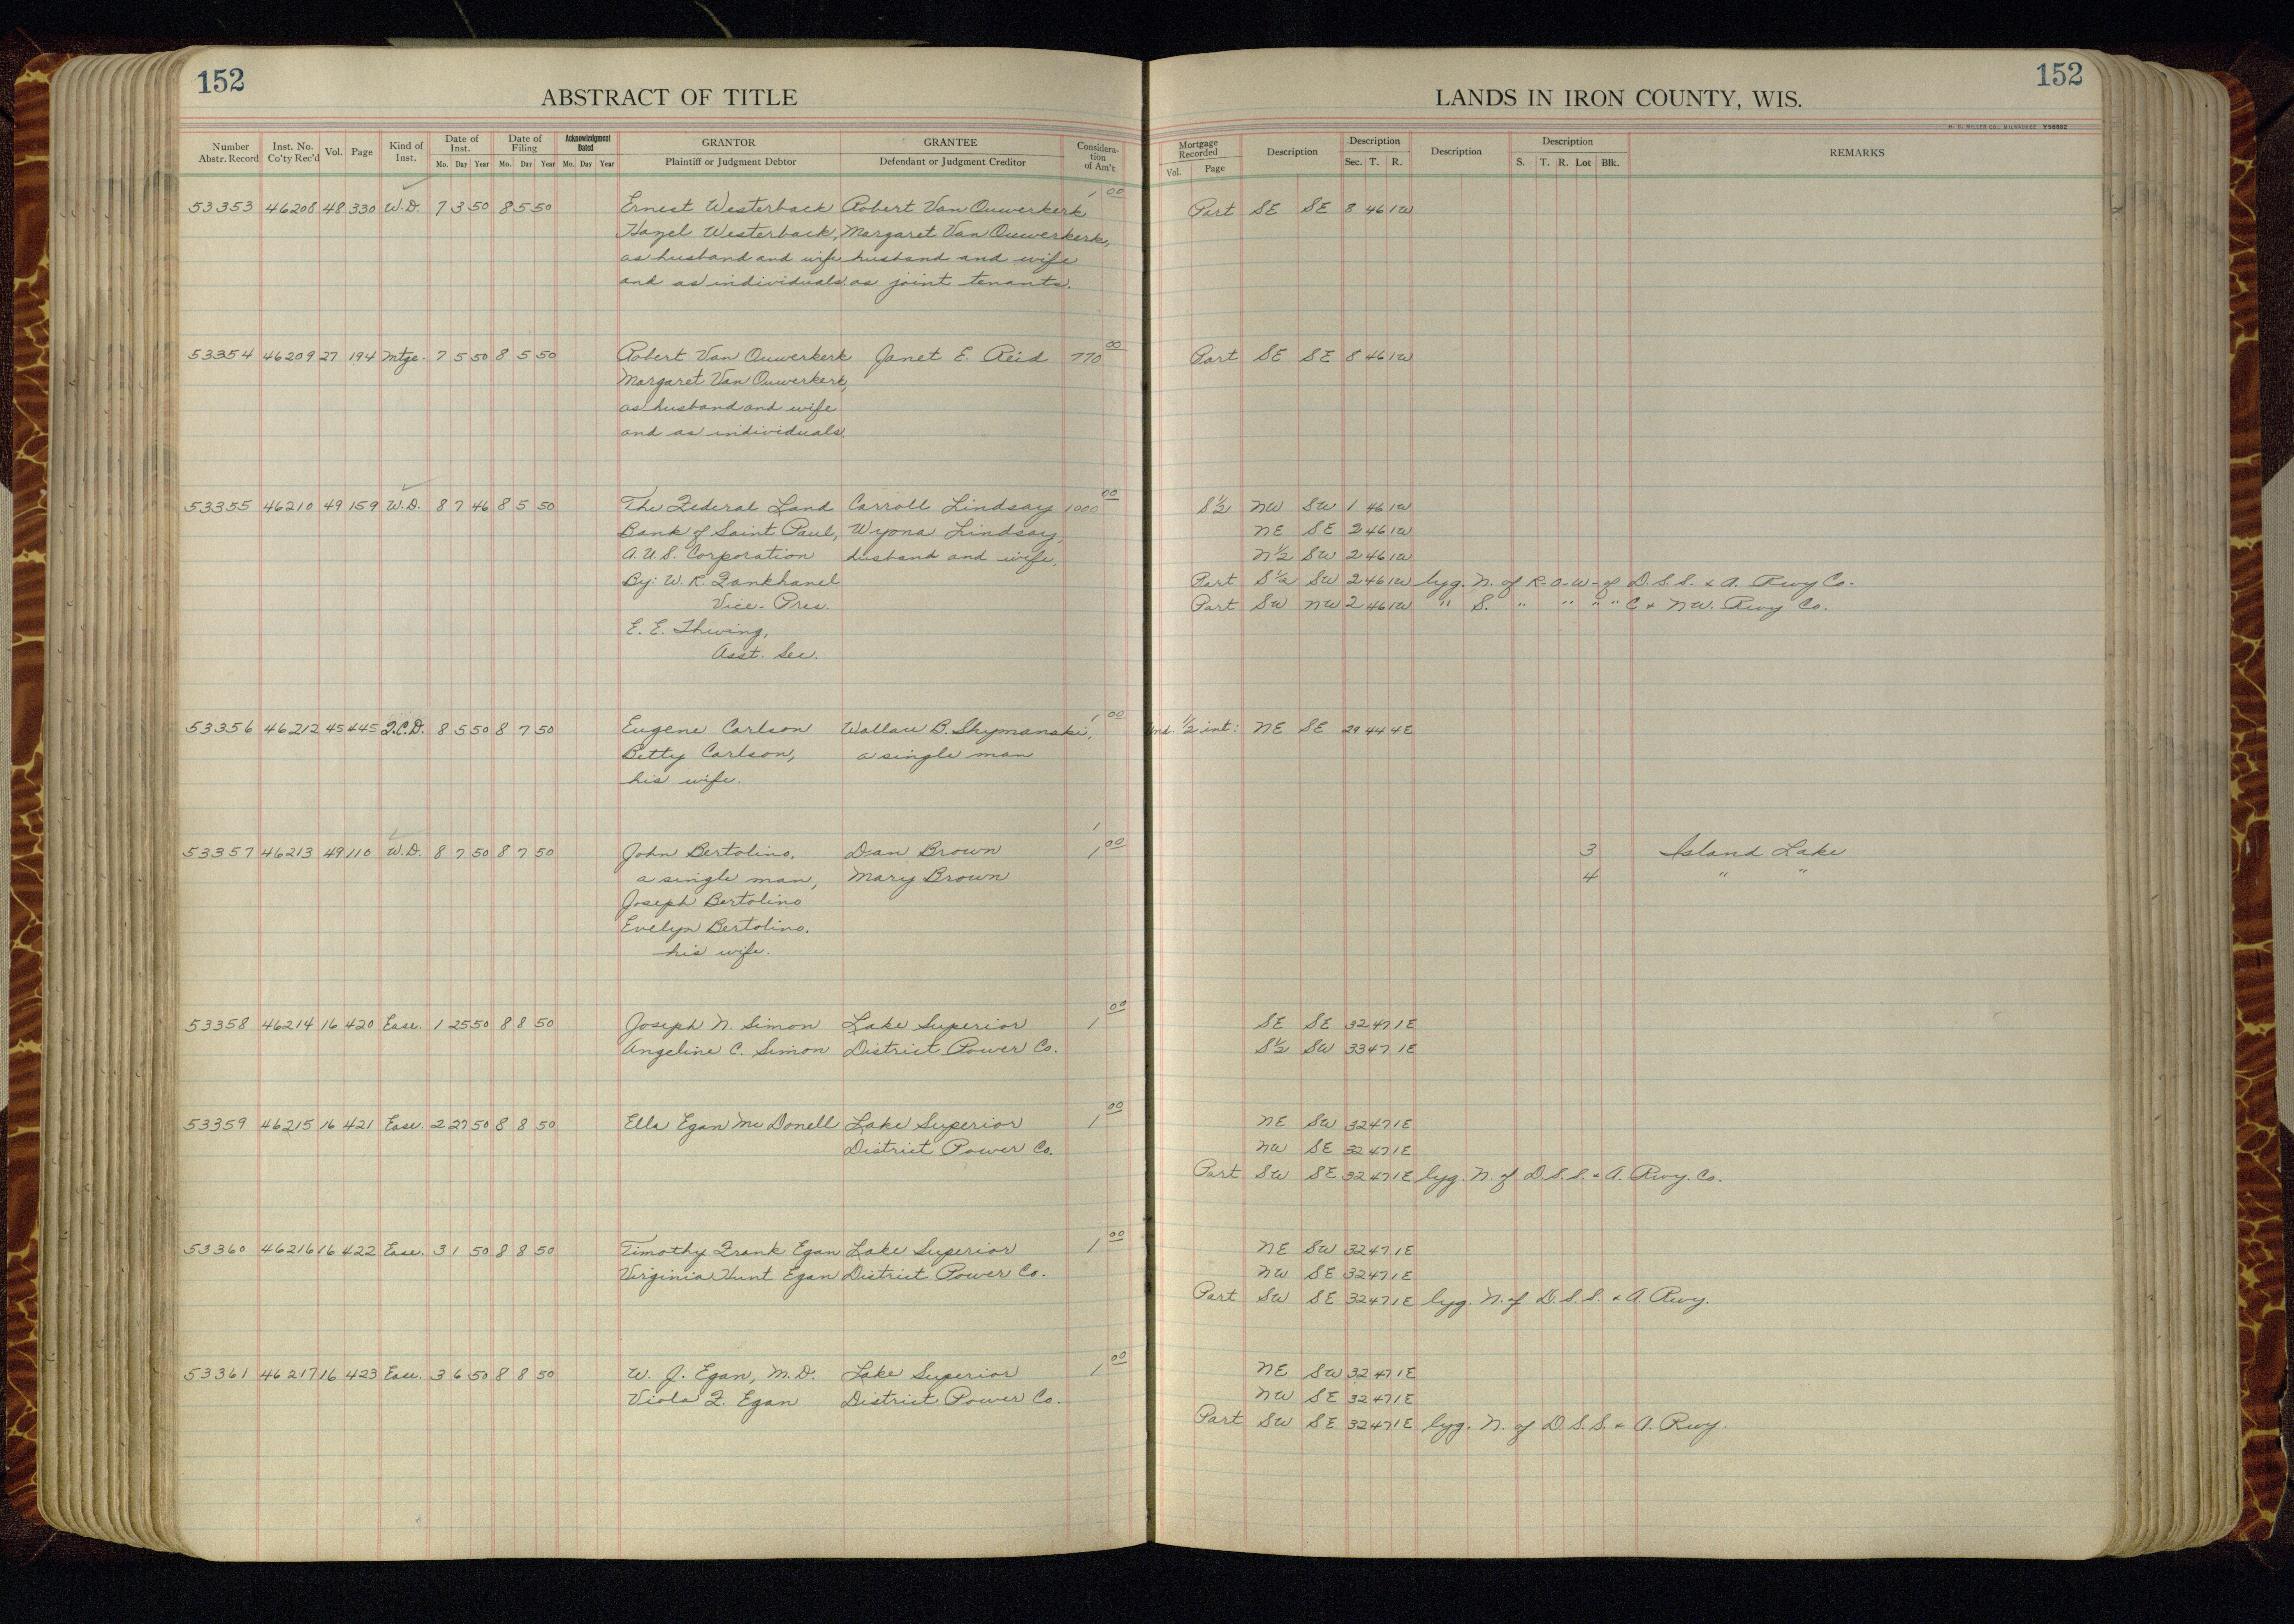 152
ABSTRACT OF TITLE
Number Abstr. Record | Inst. No. Co'ty Rec'd | Vol. | Page | Kind of Inst. | Date of Inst. Mo. Day Year | Date of Filing Mo. Day Year | Acknowledgment Dated Mo. Day Year | GRANTOR Plaintiff or Judgment Debtor | GRANTEE Defendant or Judgment Creditor | Consideration of Am't
53353 46208 48 330 W.D. 7 3 50 8 5 50 Ernest Westerback Robert Van Ouwerkerk 1 00
Hazel Westerback, Margaret Van Ouwerkerk,
as husband and wife husband and wife
and as individuals. as joint tenants.
53354 46209 27 194 Mtge. 7 5 50 8 5 50 Robert Van Ouwerkerk Janet E. Reid 770 00
Margaret Van Ouwerkerk,
as husband and wife
and as individuals.
53355 46210 49 159 W.D. 8 7 46 8 5 50 The Federal Land Carroll Lindsay 1000 00
Bank of Saint Paul, Wyona Lindsay,
A.U.S. Corporation husband and wife,
By: W. R. Fankhanel
Vice-Pres.
E. E. Thwing,
Asst. Sec.
53356 46212 45 445 Q.C.D. 8 5 50 8 7 50 Eugene Carlson Wallace B. Shymanski, 1 00
Betty Carlson, a single man
his wife.
1
53357 46213 49 110 W.D. 8 7 50 8 7 50 John Bertolino, Dan Brown 1 00
a single man, Mary Brown
Joseph Bertolino
Evelyn Bertolino,
his wife.
53358 46214 16 420 Ease. 1 25 50 8 8 50 Joseph N. Simon Lake Superior 1 00
Angeline C. Simon District Power Co.
53359 46215 16 421 Ease. 2 27 50 8 8 50 Ella Egan McDonell Lake Superior 1 00
District Power Co.
53360 46216 16 422 Ease. 3 1 50 8 8 50 Timothy Frank Egan Lake Superior 1 00
Virginia Hunt Egan District Power Co.
53361 46217 16 423 Ease. 3 6 50 8 8 50 W. J. Egan, M.D. Lake Superior 1 00
Viola F. Egan District Power Co.
152
LANDS IN IRON COUNTY, WIS.
H. C. MILLER CO., MILWAUKEE Y58882
Mortgage Recorded Vol. Page | Description | Description Sec. T. R. | Description | Description S. T. R. Lot Blk. | REMARKS
Part SE SE 8 46 1W
Part SE SE 8 46 1W
S½ NW SW 1 46 1W
NE SE 2 46 1W
N½ SW 2 46 1W
Part S½ SW 2 46 1W lyg. N. of R-O-W- of D.S.S. & A. Rwy Co.
Part SW NW 2 46 1W " S. " " " " C & NW. Rwy Co.
Und. ½ int: NE SE 29 44 4E
3 Island Lake
4 " "
SE SE 32 47 1E
S½ SW 33 47 1E
NE SW 32 47 1E
NW SE 32 47 1E
Part SW SE 32 47 1E lyg. N. of D.S.S. & A. Rwy. Co.
NE SW 32 47 1E
NW SE 32 47 1E
Part SW SE 32 47 1E lyg. N. of D.S.S. & A. Rwy.
NE SW 32 47 1E
NW SE 32 47 1E
Part SW SE 32 47 1E lyg. N. of D.S.S. & A. Rwy.